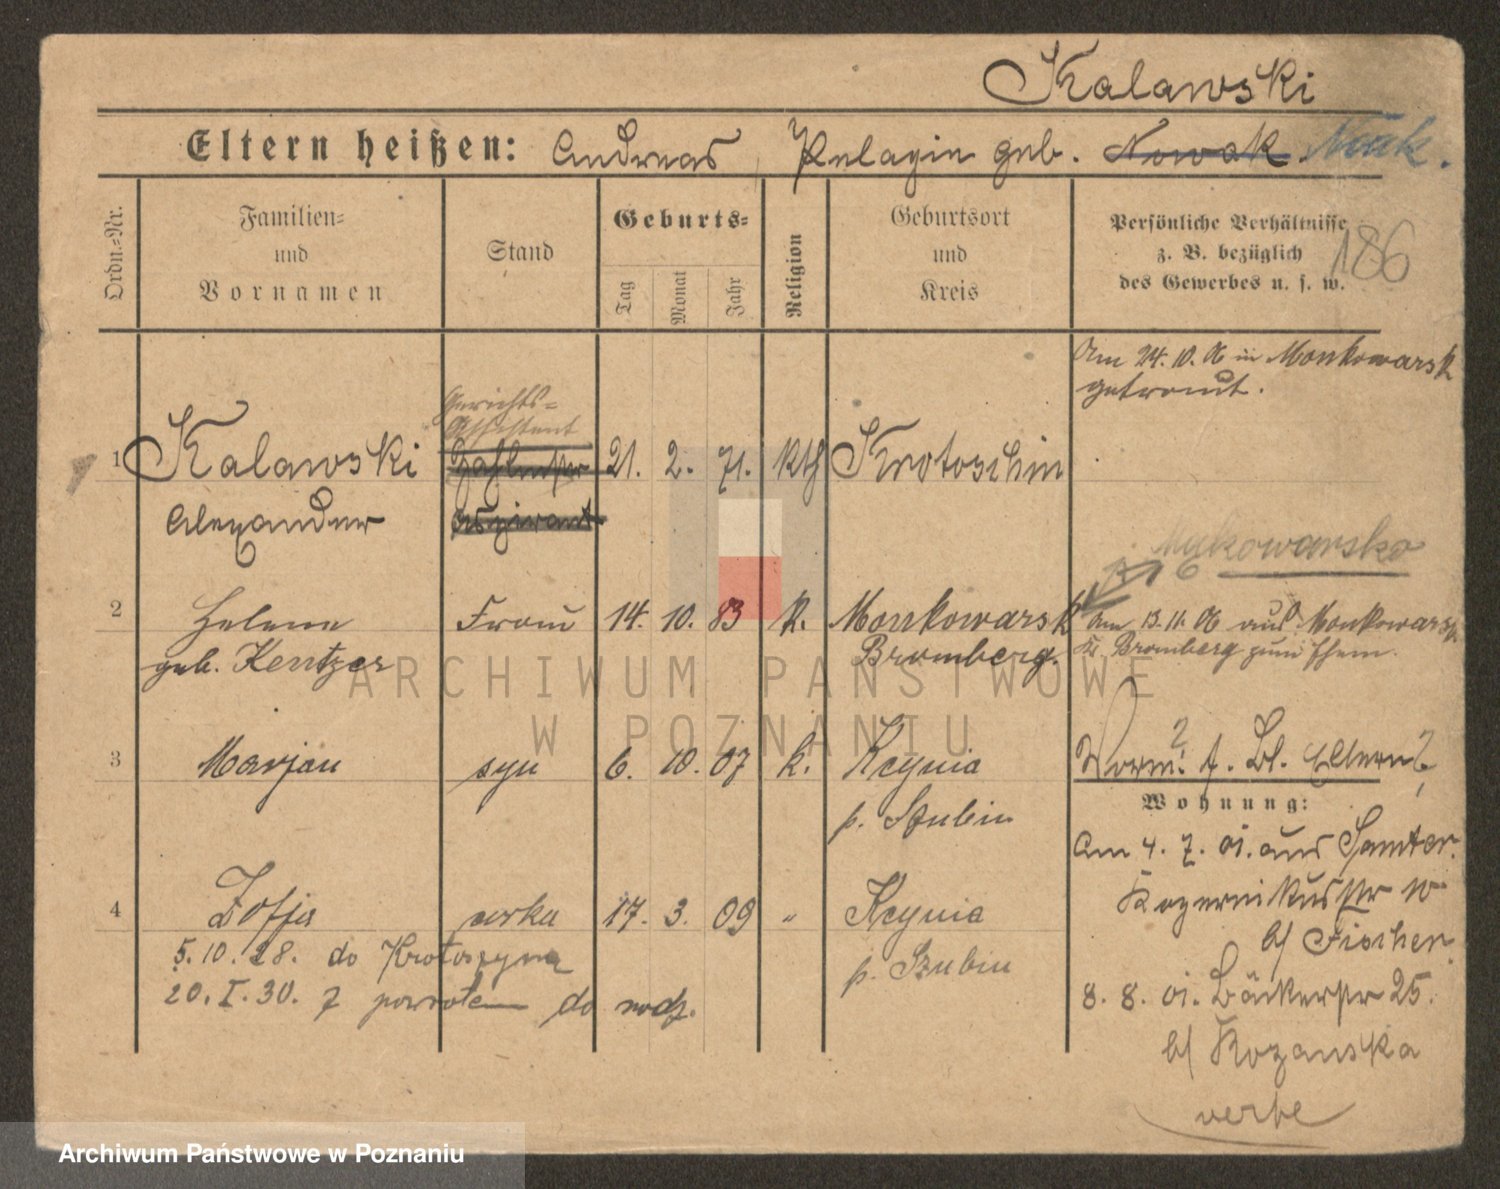 Kalawski
Eltern heißen: Andreas, Pelagia geb. Nowak.
Ordn.-Nr.
Familien-
und
Vornamen
Stand
Geburts-
Tag
Monat
Jahr
Religion
Geburtsort
und
Kreis
Persönliche Verhältnisse
z. B. bezüglich
des Gewerbes u. s. w.
186
Am 24. 10. 06 in Monkowarsk
getraut.
Gerichts-
Assistent
1 Kalawski Zahlmstr 21. 2. 71. kth Krotoschin
Alexander Aspirant
Mąkowarsko
2 Helene Frau 14. 10. 83 k. Monkowarsk Am 13. 11. 06 aus Monkowarsk
geb. Kentzer Bromberg. Kr. Bromberg zum Ehem.
3 Marjan syn 6. 10. 07 k. Kcynia
p. Szubin
Wohnung:
Am 4. 7. 01. aus Samter.
4 Zofja córka 17. 3. 09 " Kcynia
p. Szubin
Kopernikusstr 10
b/ Fischer.
5. 10. 28. do Krotoszyna
20. I. 30. z powrotem do rodz.
8. 8. 01. Bäckerstr 25.
b/ Kozanska
verte
ARCHIWUM PAŃSTWOWE
W POZNANIU
Archiwum Państwowe w Poznaniu